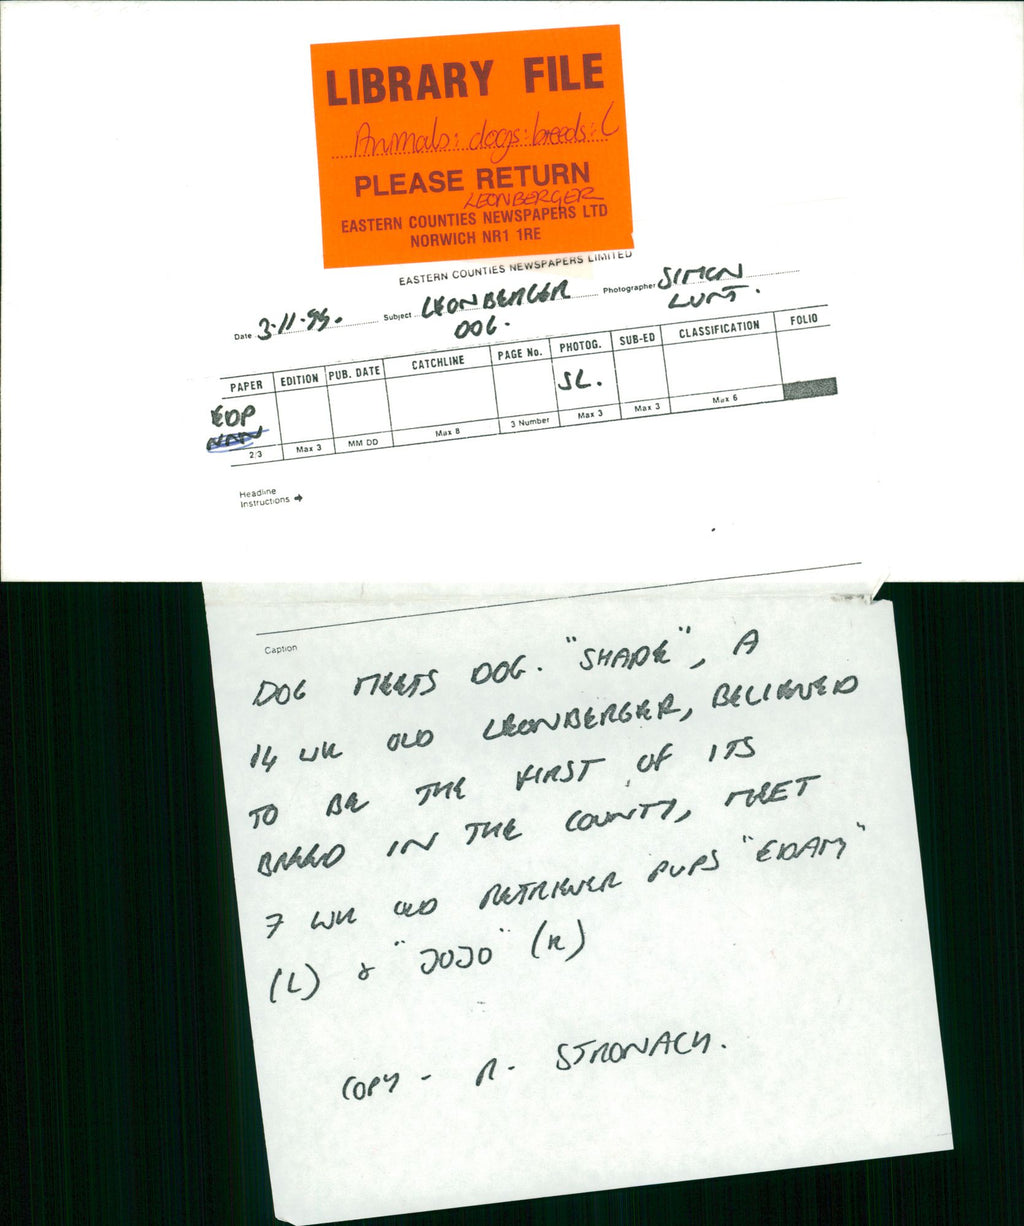 LIBRARY FILE
Animals: dogs: breeds: L
PLEASE RETURN
LEONBERGER
EASTERN COUNTIES NEWSPAPERS LTD
NORWICH NR1 1RE
EASTERN COUNTIES NEWSPAPERS LIMITED
Date 3.11.95. Subject LEONBERGER DOG. Photographer SIMON LUNT.
PAPER EDITION PUB. DATE CATCHLINE PAGE No. PHOTOG. SUB-ED CLASSIFICATION FOLIO
EDP SL.
2/3 Max 3 MM DD Max 8 3 Number Max 3 Max 3 Max 6
Headline
Instructions ➔
Caption
DOG MEETS DOG. "SHADE", A
14 WK OLD LEONBERGER, BELIEVED
TO BE THE FIRST OF ITS
BREED IN THE COUNTY, MEET
7 WK OLD RETRIEVER PUPS "EDAM"
(L) & "JOJO" (R)
COPY - R. STRONACH.